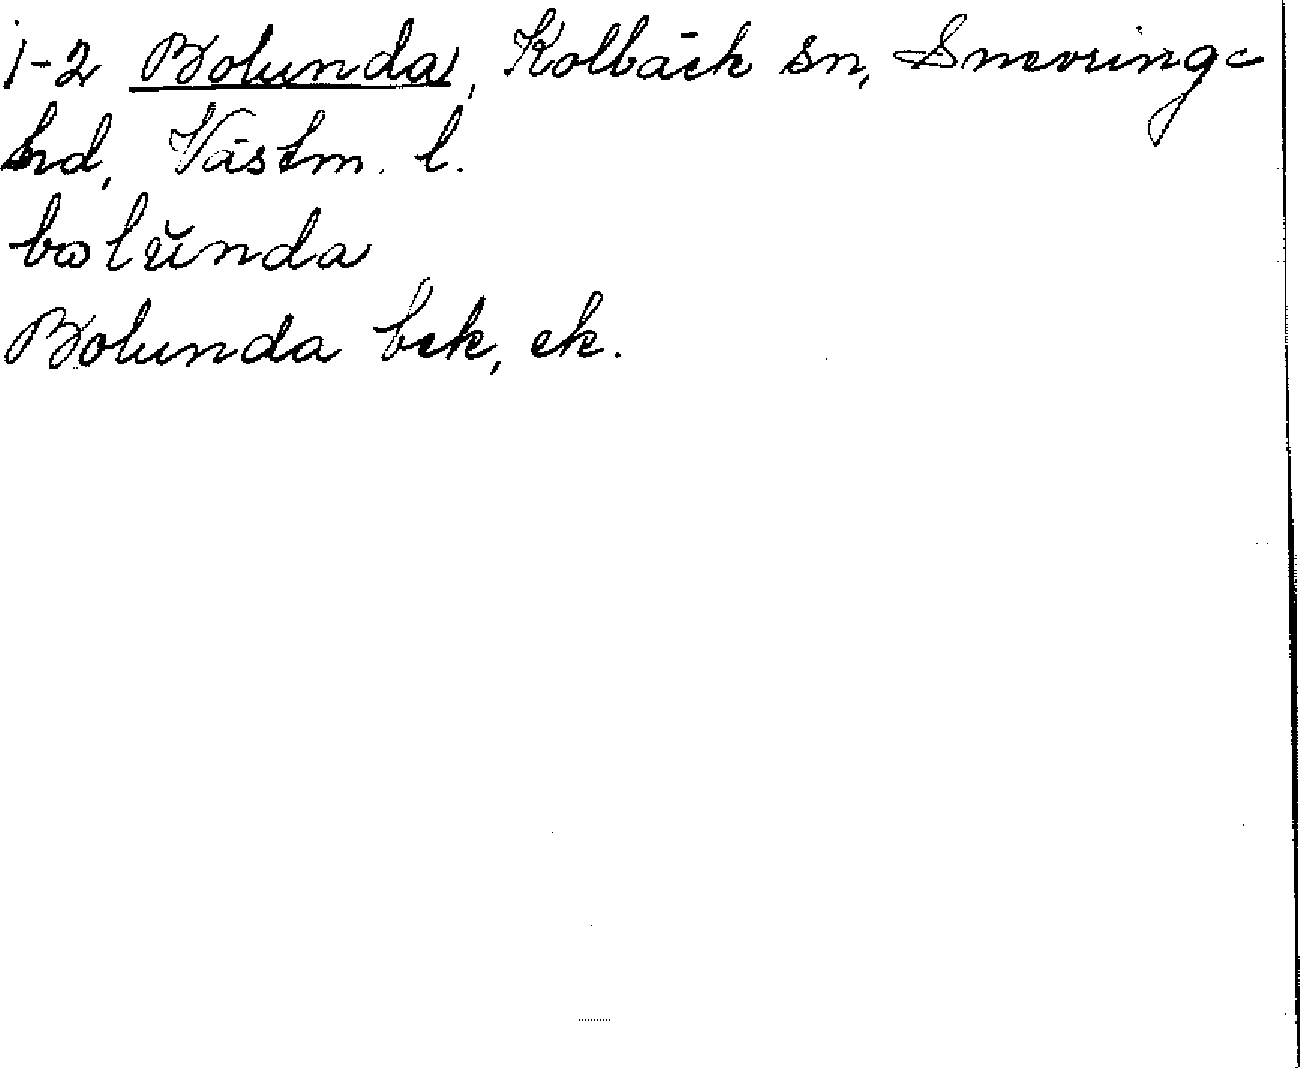 1-2 Bolunda, Kolbäck sn, Snevringe
hd, Västm. l.
bωlŭnda
Bolunda bek, ek.